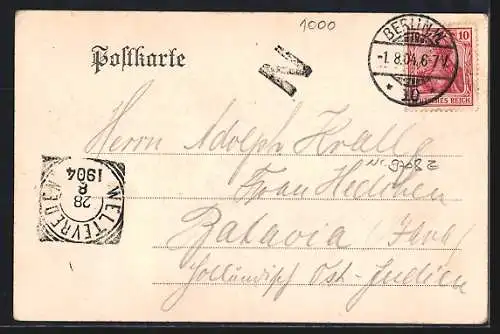 1000
Postkarte
BERLIN.N.
-1.8.04.6-7V.
* 10
10
DEUTSCHES REICH
AV
Herrn Adolph Kralle
Nr. 9708 E
Frau Hedchen
Batavia (Java)
Holländisch Ost-Indien
WELTEVREDEN
28
8
1904